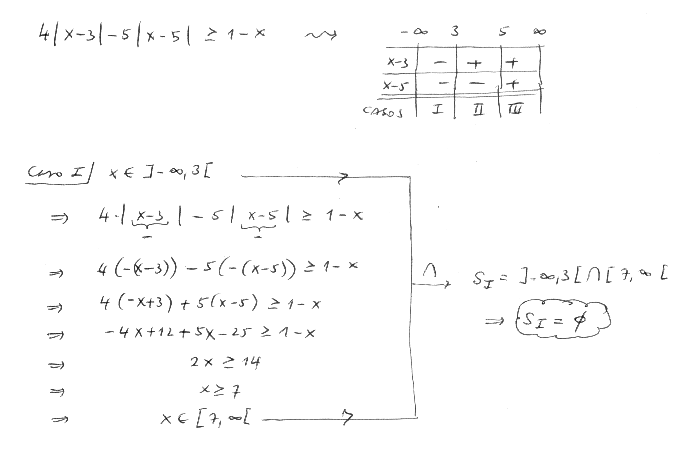 4|x-3|-5|x-5| ≥ 1-x ⇝
-∞ 3 5 ∞
x-3 - + +
x-5 - - +
CASOS I II III
Caso I/ x ∈ ]-∞,3[
⇒ 4·|x-3| - 5|x-5| ≥ 1-x
- -
⇒ 4(-(x-3)) - 5(-(x-5)) ≥ 1-x
⇒ 4(-x+3) + 5(x-5) ≥ 1-x
⇒ -4x+12+5x-25 ≥ 1-x
⇒ 2x ≥ 14
⇒ x ≥ 7
⇒ x ∈ [7,∞[
∩ S_I = ]-∞,3[ ∩ [7,∞[
⇒ S_I = ∅